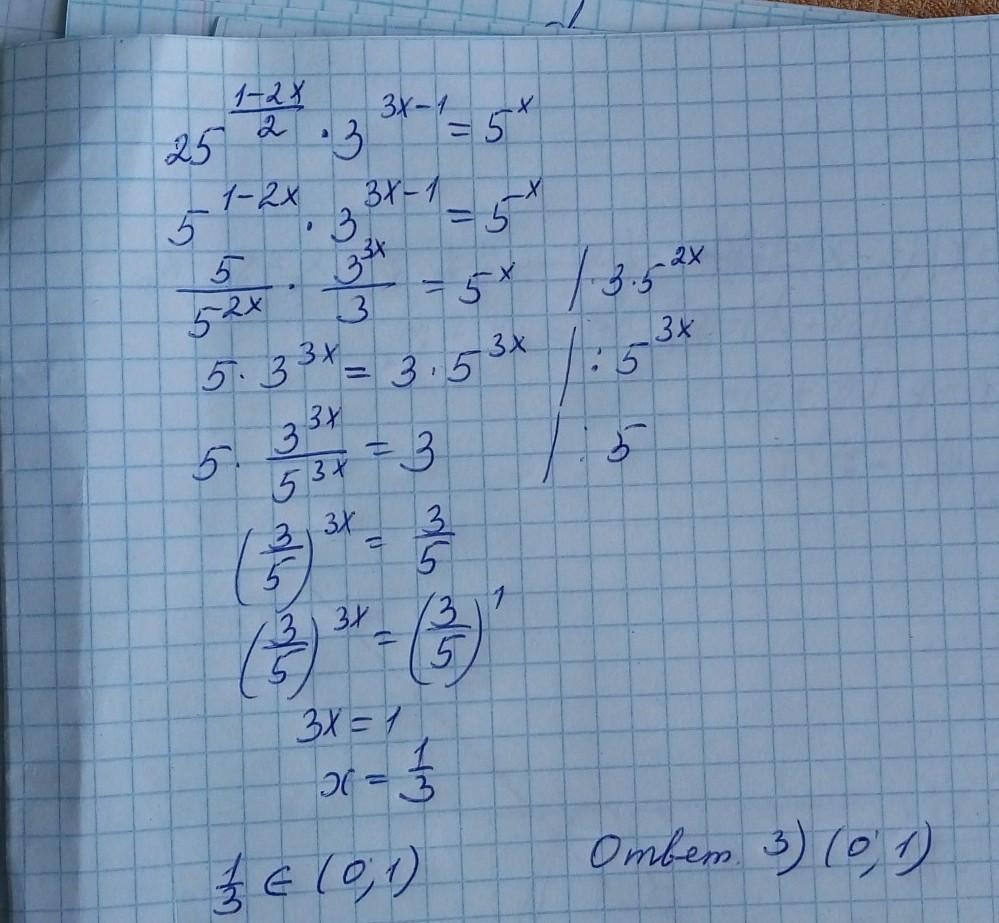 25^((1-2x)/2) · 3^(3x-1) = 5^x
5^(1-2x) · 3^(3x-1) = 5^x
5/5^(2x) · 3^(3x)/3 = 5^x /· 3·5^(2x)
5 · 3^(3x) = 3 · 5^(3x) /: 5^(3x)
5 · 3^(3x)/5^(3x) = 3 /: 5
(3/5)^(3x) = 3/5
(3/5)^(3x) = (3/5)^1
3x = 1
x = 1/3
1/3 ∈ (0; 1) Ответ. 3) (0; 1)